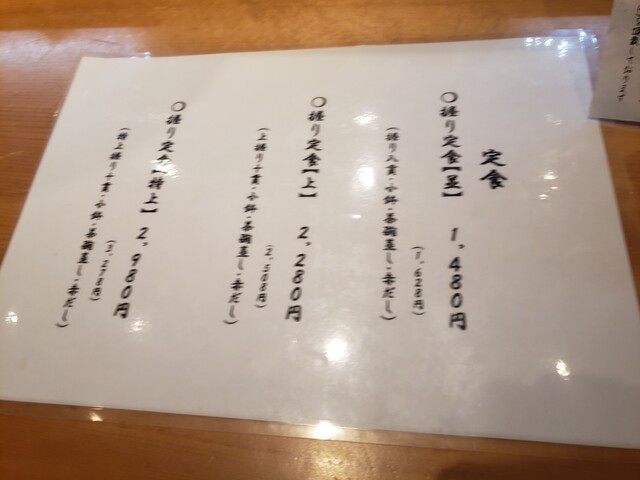 定食
〇握り定食【並】 1,480円
(1,628円)
(握り八貫・小鉢・茶碗蒸し・赤だし)
〇握り定食【上】 2,280円
(2,508円)
(上握り十貫・小鉢・茶碗蒸し・赤だし)
〇握り定食【特上】 2,980円
(3,278円)
(特上握り十貫・小鉢・茶碗蒸し・赤だし)
しております